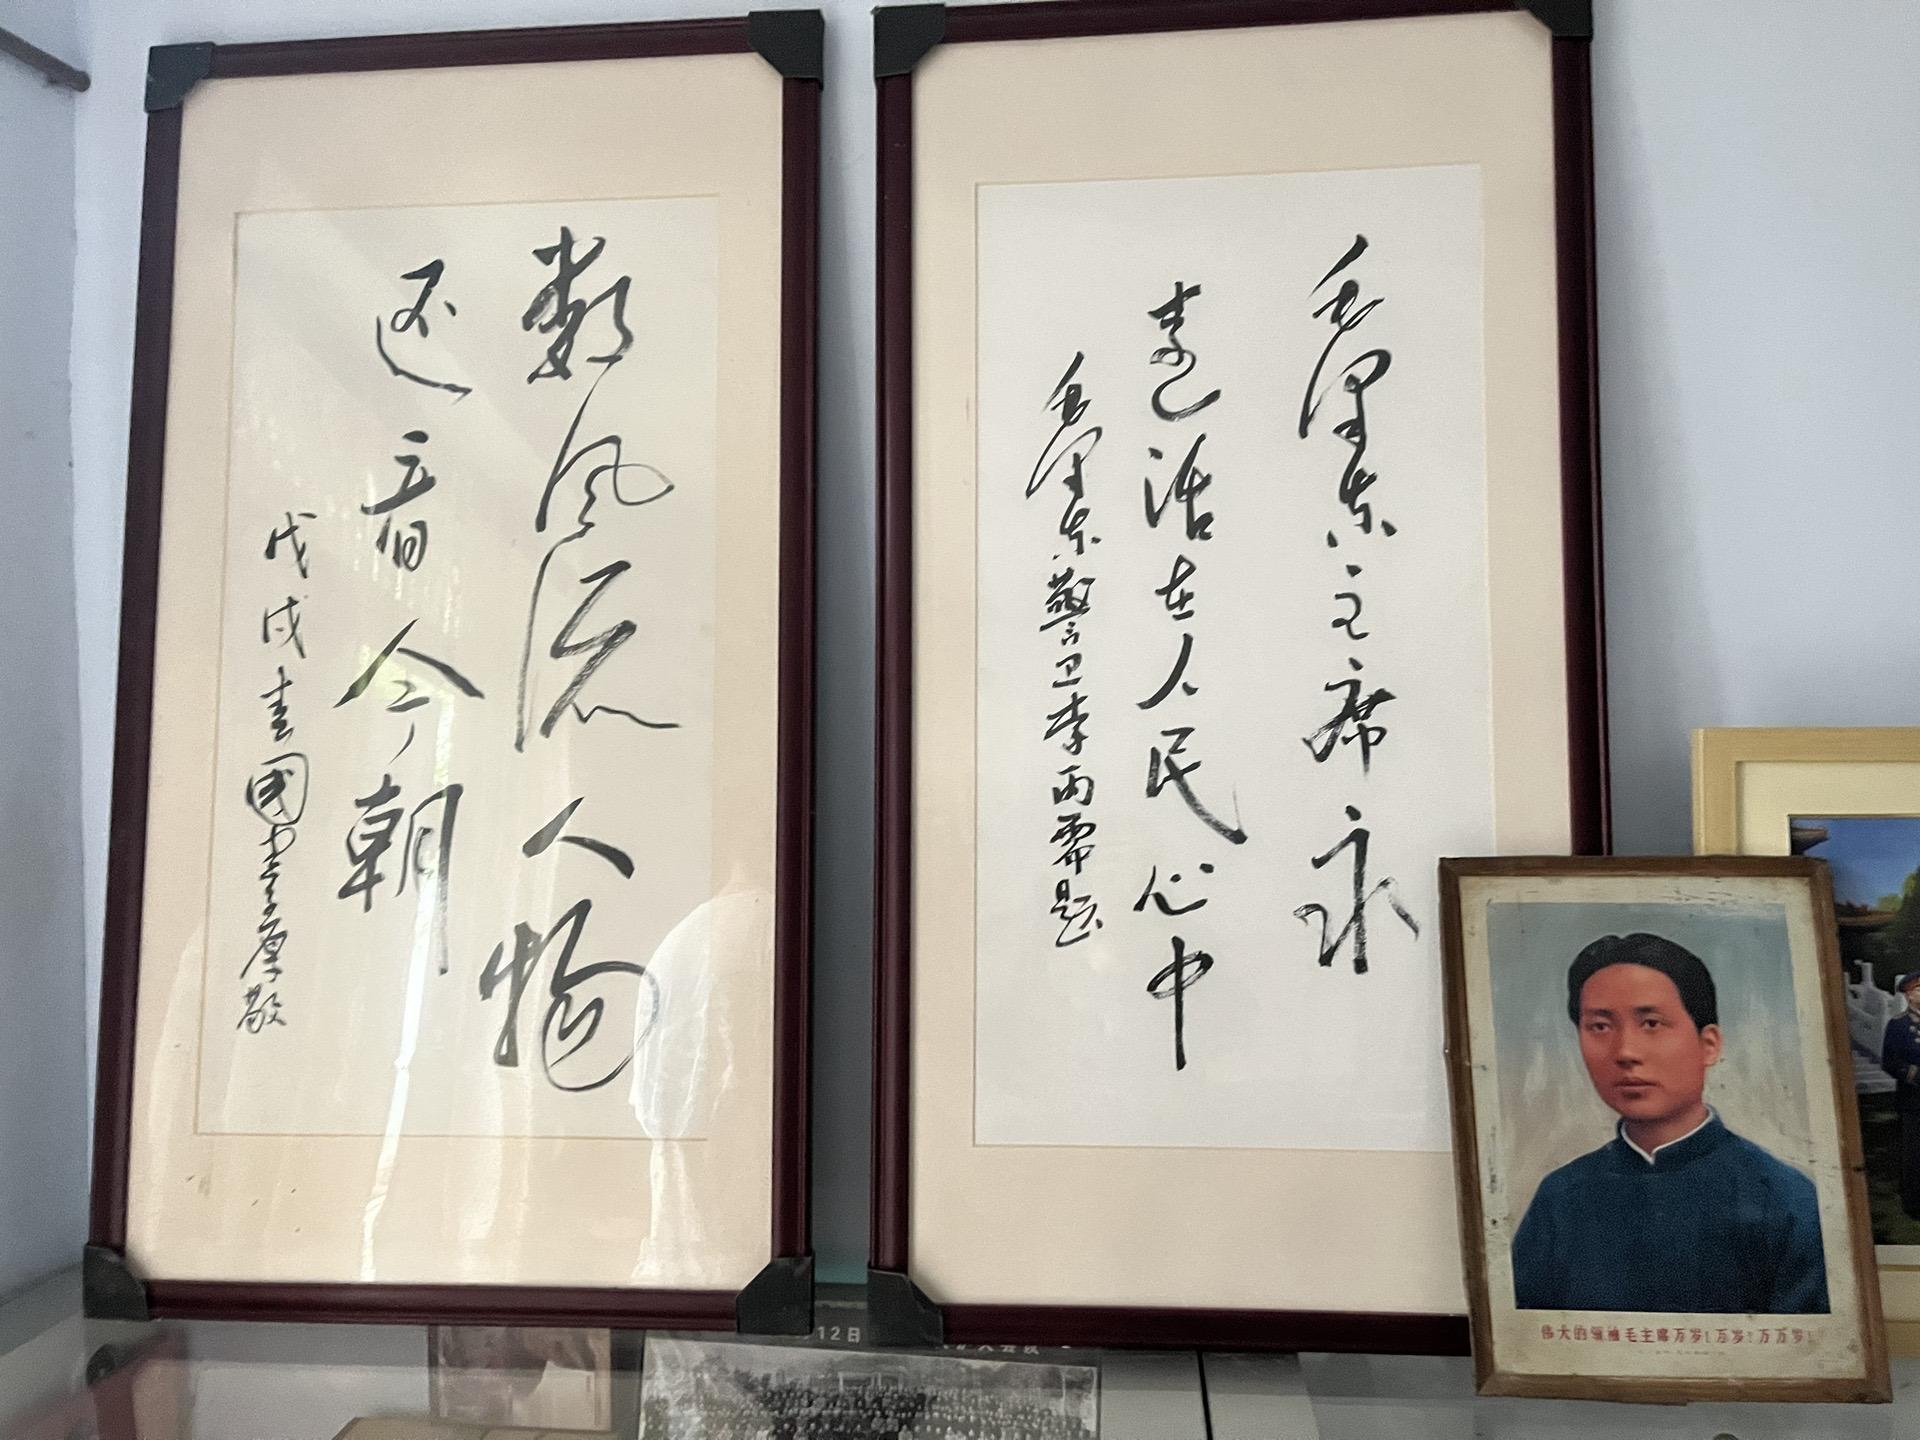 数风流人物
还看今朝
戊戌
毛泽东主席永
远活在人民心中
毛泽东警卫李雨霈题
伟大的领袖毛主席万岁！万岁！万万岁！
12日